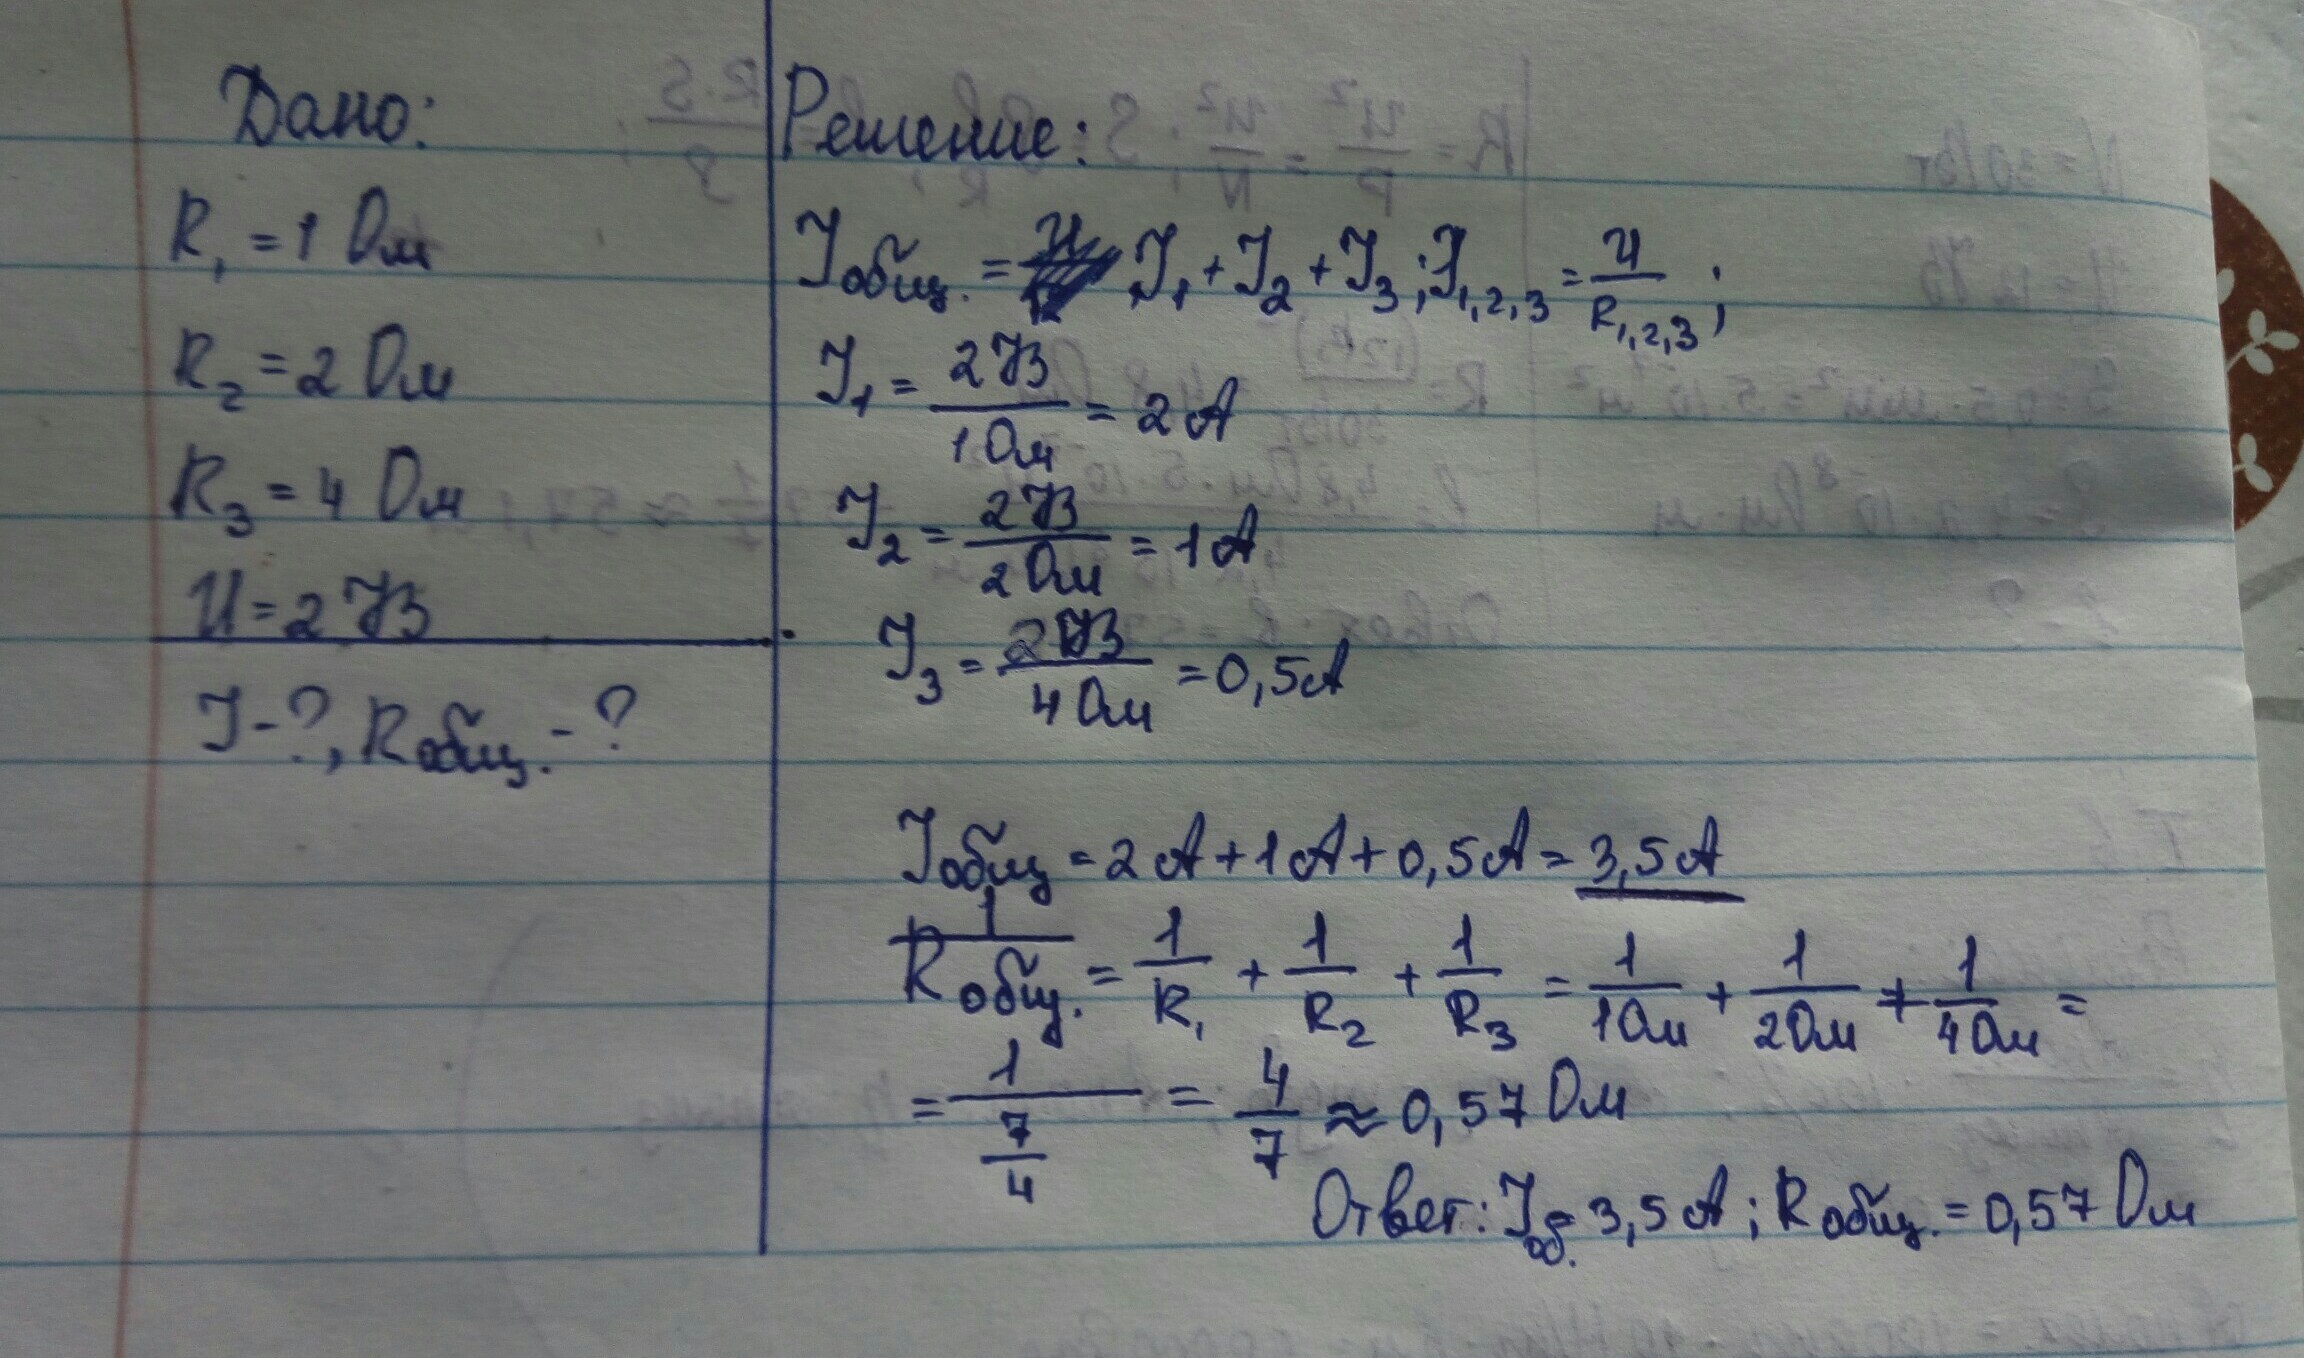 Дано:
R₁ = 1 Ом
R₂ = 2 Ом
R₃ = 4 Ом
U = 2 В
I - ?, Rобщ. - ?
Решение:
Iобщ. = I₁ + I₂ + I₃; I₁,₂,₃ = U / R₁,₂,₃;
I₁ = 2 В / 1 Ом = 2 А
I₂ = 2 В / 2 Ом = 1 А
I₃ = 2 В / 4 Ом = 0,5 А
Iобщ = 2 А + 1 А + 0,5 А = 3,5 А
1 / Rобщ. = 1 / R₁ + 1 / R₂ + 1 / R₃ = 1 / 1 Ом + 1 / 2 Ом + 1 / 4 Ом =
= 1 / (7 / 4) = 4 / 7 ≈ 0,57 Ом
Ответ: Iоб. = 3,5 А; Rобщ. = 0,57 Ом